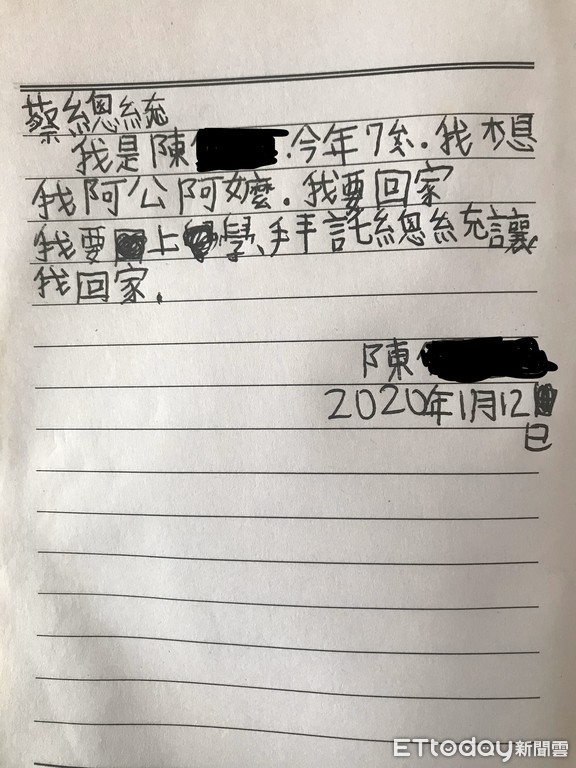 蔡總統
我是陳 .今年7糸.我想
我阿公阿嬤.我要回家
我要上學、拜託總統讓
我回家.
陳
2020年1月12
日
ETtoday新聞雲